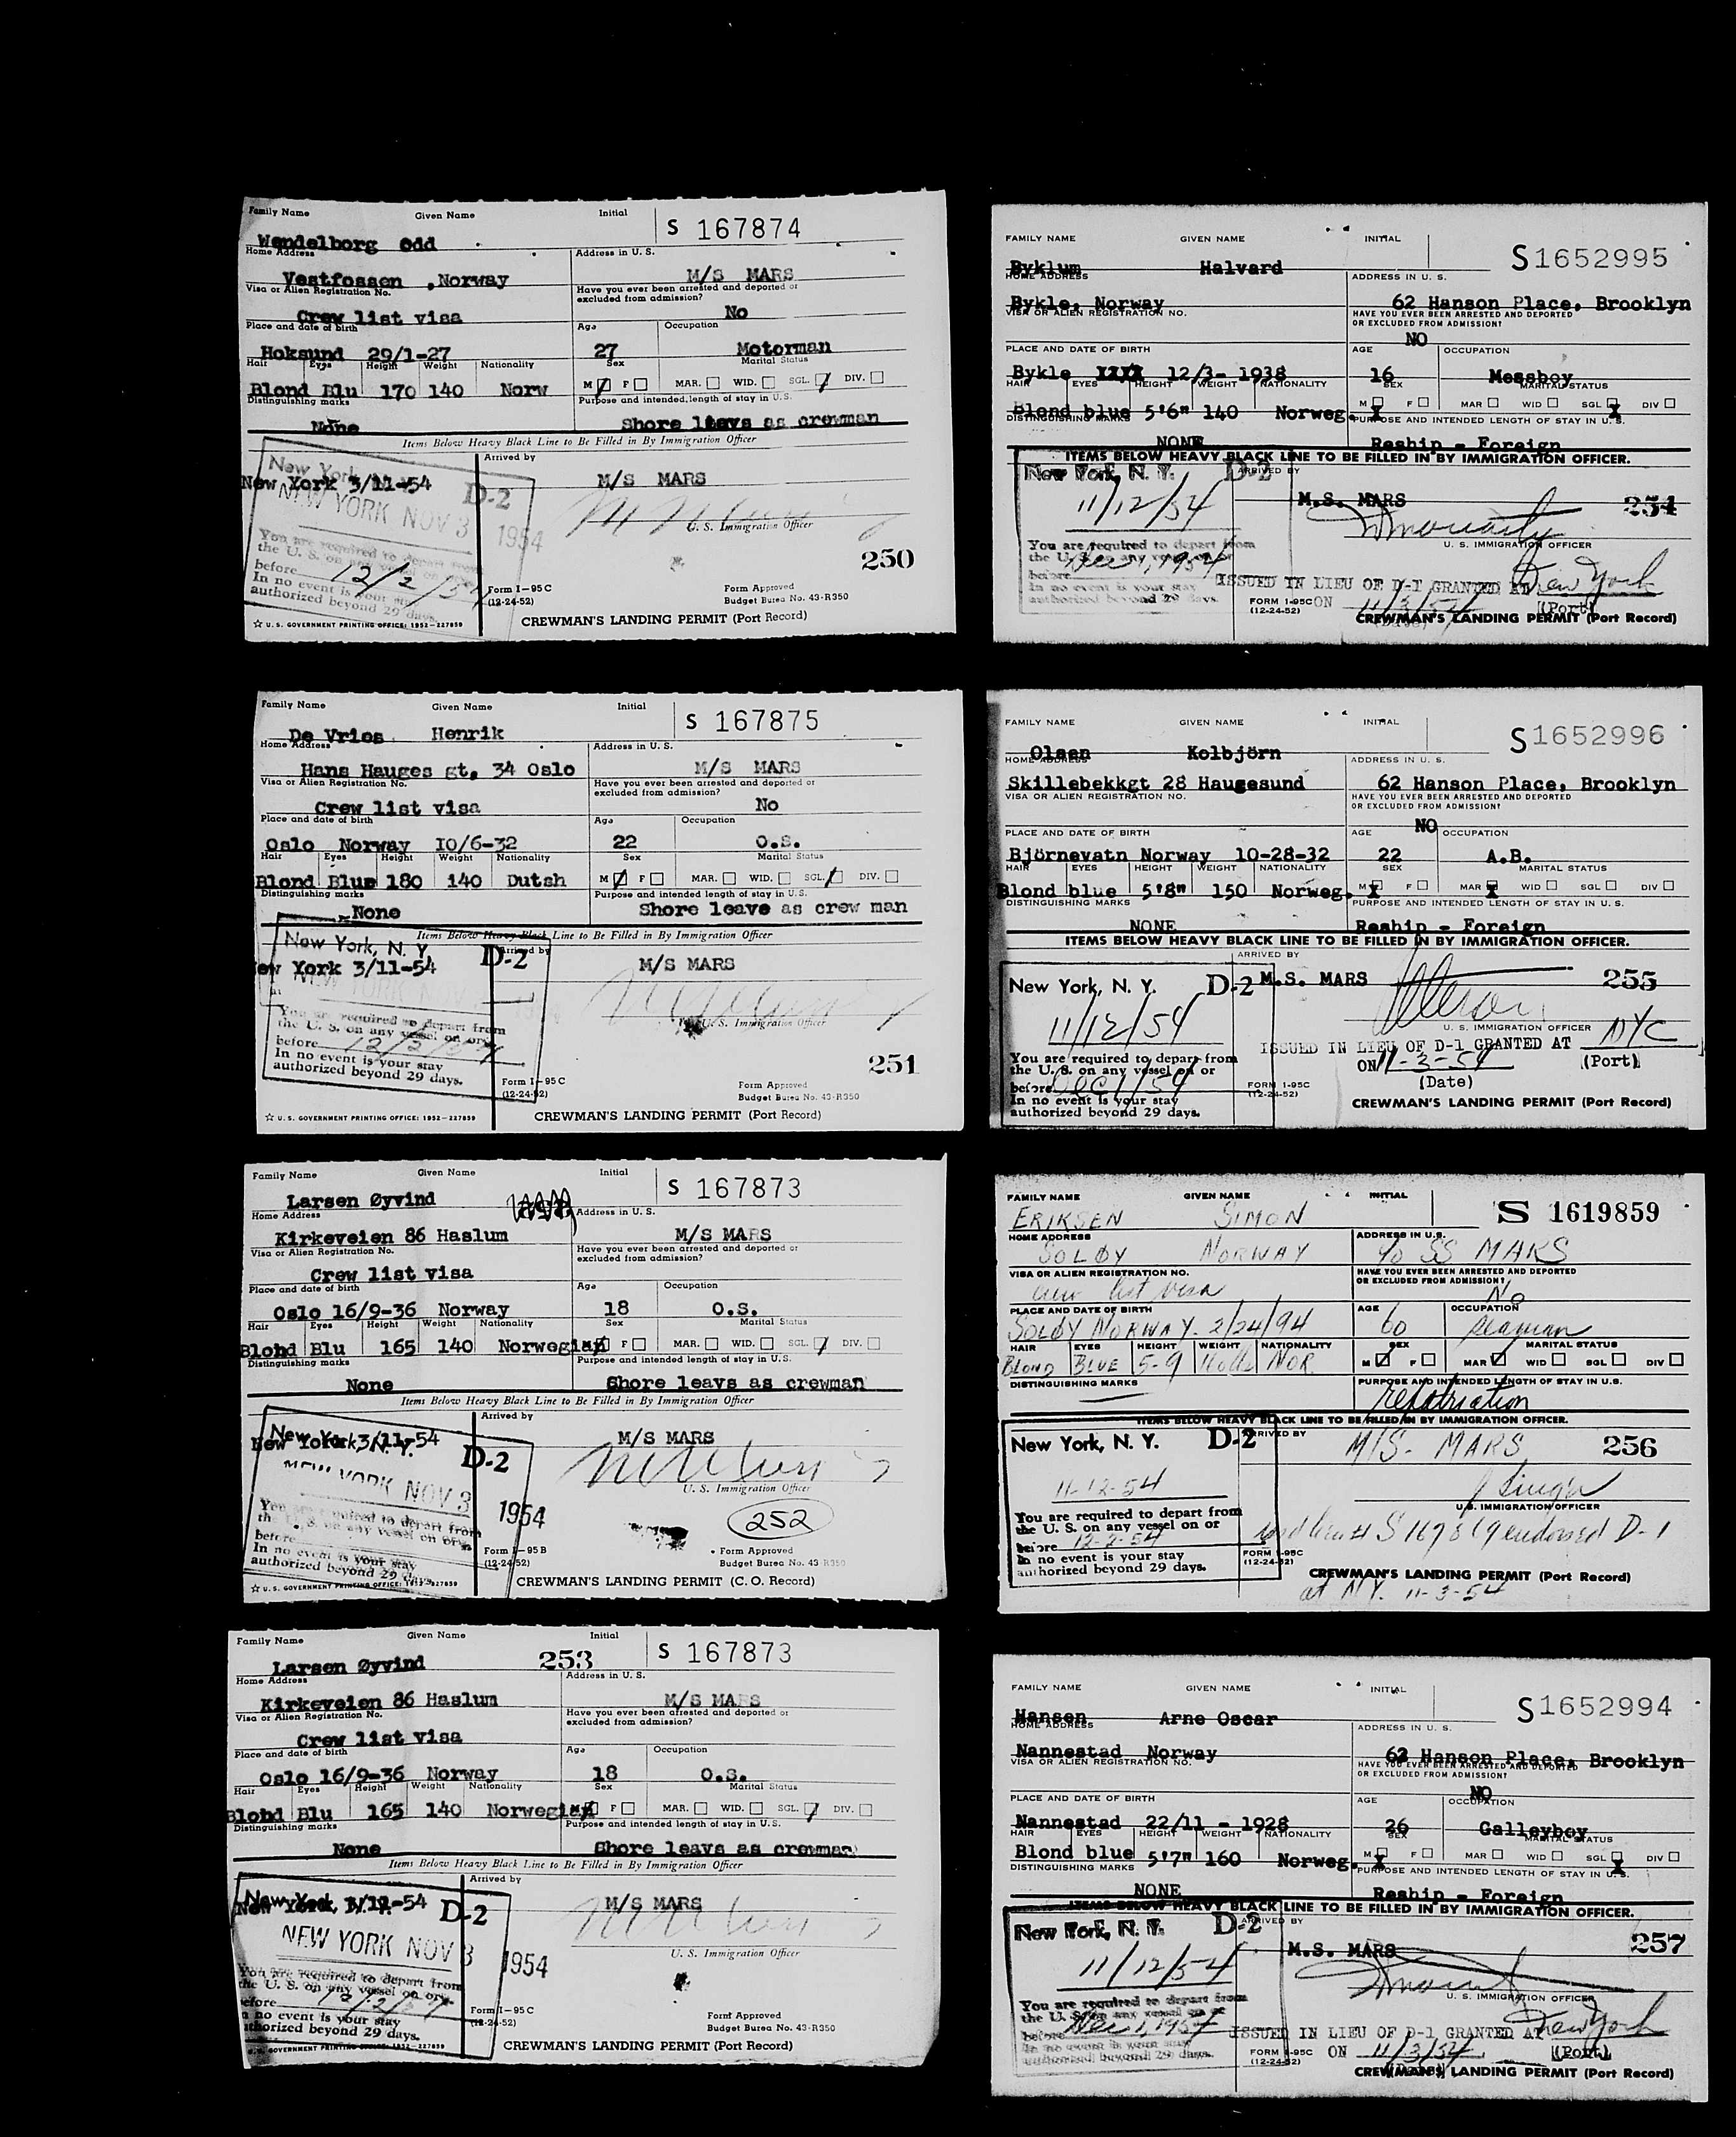 Family Name Given Name Initial S 167874
Wendelborg Odd
Home Address Address in U. S.
Vestfossen , Norway M/S MARS
Visa or Alien Registration No. Have you ever been arrested and deported or excluded from admission?
Crew list visa No
Place and date of birth Age Occupation
Hoksund 29/1-27 27 Motorman
Hair Eyes Height Weight Nationality Sex Marital Status
Blond Blu 170 140 Norw M F MAR. WID. SGL. DIV.
Distinguishing marks Purpose and intended length of stay in U.S.
None Shore leave as crewman
Items Below Heavy Black Line to Be Filled in By Immigration Officer
Arrived by
New York 3/11-54 D-2 M/S MARS
NEW YORK NOV 3 1954
U. S. Immigration Officer
You are required to depart from
the U. S. on any vessel on or
before 12/2/54
In no event is your stay
authorized beyond 29 days.
250
Form I-95 C
(12-24-52)
Form Approved
Budget Bureau No. 43-R350
☆ U. S. GOVERNMENT PRINTING OFFICE: 1952—227859
CREWMAN'S LANDING PERMIT (Port Record)
Family Name Given Name Initial S 167875
De Vries Henrik
Home Address Address in U. S.
Hans Hauges gt. 34 Oslo M/S MARS
Visa or Alien Registration No. Have you ever been arrested and deported or excluded from admission?
Crew list visa No
Place and date of birth Age Occupation
Oslo Norway 10/6-32 22 O.S.
Hair Eyes Height Weight Nationality Sex Marital Status
Blond Blue 180 140 Dutch M F MAR. WID. SGL. DIV.
Distinguishing marks Purpose and intended length of stay in U.S.
None Shore leave as crew man
Items Below Heavy Black Line to Be Filled in By Immigration Officer
New York, N. Y. D-2 Arrived by
New York 3/11-54 M/S MARS
U. S. Immigration Officer
You are required to depart from
the U. S. on any vessel on or
before 12/2/54
In no event is your stay
authorized beyond 29 days.
251
Form I-95 C
(12-24-52)
Form Approved
Budget Bureau No. 43-R350
☆ U. S. GOVERNMENT PRINTING OFFICE: 1952—227859
CREWMAN'S LANDING PERMIT (Port Record)
Family Name Given Name Initial S 167873
Larsen Øyvind
Home Address Address in U. S.
Kirkeveien 86 Haslum M/S MARS
Visa or Alien Registration No. Have you ever been arrested and deported or excluded from admission?
Crew list visa
Place and date of birth Age Occupation
Oslo 16/9-36 Norway 18 O.S.
Hair Eyes Height Weight Nationality Sex Marital Status
Blond Blu 165 140 Norwegian M F MAR. WID. SGL. DIV.
Distinguishing marks Purpose and intended length of stay in U.S.
None Shore leave as crewman
Items Below Heavy Black Line to Be Filled in By Immigration Officer
Arrived by
New York 3/11-54 D-2 M/S MARS
NEW YORK NOV 3 1954
U. S. Immigration Officer
You are required to depart from
the U. S. on any vessel on or
before
In no event is your stay
authorized beyond 29 days.
252
Form I-95 B
(12-24-52)
Form Approved
Budget Bureau No. 43-R350
☆ U. S. GOVERNMENT PRINTING OFFICE: 1952—227859
CREWMAN'S LANDING PERMIT (C. O. Record)
Family Name Given Name Initial S 167873
Larsen Øyvind 253
Home Address Address in U. S.
Kirkeveien 86 Haslum M/S MARS
Visa or Alien Registration No. Have you ever been arrested and deported or excluded from admission?
Crew list visa
Place and date of birth Age Occupation
Oslo 16/9-36 Norway 18 O.S.
Hair Eyes Height Weight Nationality Sex Marital Status
Blond Blu 165 140 Norwegian M F MAR. WID. SGL. DIV.
Distinguishing marks Purpose and intended length of stay in U.S.
None Shore leave as crewman
Items Below Heavy Black Line to Be Filled in By Immigration Officer
Arrived by
D-2 M/S MARS
NEW YORK NOV 3 1954
U. S. Immigration Officer
You are required to depart from
the U. S. on any vessel on or
before 12/2/54
In no event is your stay
authorized beyond 29 days.
Form I-95 C
(12-24-52)
Form Approved
Budget Bureau No. 43-R350
U. S. GOVERNMENT PRINTING OFFICE: 1952—227859
CREWMAN'S LANDING PERMIT (Port Record)
FAMILY NAME GIVEN NAME INITIAL S1652995
Byklum Halvard
HOME ADDRESS ADDRESS IN U. S.
Bykle, Norway 62 Hanson Place, Brooklyn
VISA OR ALIEN REGISTRATION NO. HAVE YOU EVER BEEN ARRESTED AND DEPORTED OR EXCLUDED FROM ADMISSION?
NO
PLACE AND DATE OF BIRTH AGE OCCUPATION
Bykle 12/3- 1938 16 Messboy
HAIR EYES HEIGHT WEIGHT NATIONALITY SEX MARITAL STATUS
Blond blue 5'6" 140 Norweg. M X F MAR WID SGL X DIV
DISTINGUISHING MARKS PURPOSE AND INTENDED LENGTH OF STAY IN U. S.
NONE Reship - Foreign
ITEMS BELOW HEAVY BLACK LINE TO BE FILLED IN BY IMMIGRATION OFFICER.
New York, N. Y. D-2 ARRIVED BY
11/12/54 M.S. MARS 254
U. S. IMMIGRATION OFFICER
You are required to depart from
the U. S. on any vessel on or
before Dec 1, 1954
In no event is your stay
authorized beyond 29 days.
ISSUED IN LIEU OF D-1 GRANTED AT New York
(Port)
FORM I-95C ON 11/3/54
(12-24-52)
CREWMAN'S LANDING PERMIT (Port Record)
FAMILY NAME GIVEN NAME INITIAL S1652996
Olsen Kolbjörn
HOME ADDRESS ADDRESS IN U. S.
Skillebekkgt 28 Haugesund 62 Hanson Place, Brooklyn
VISA OR ALIEN REGISTRATION NO. HAVE YOU EVER BEEN ARRESTED AND DEPORTED OR EXCLUDED FROM ADMISSION?
NO
PLACE AND DATE OF BIRTH AGE OCCUPATION
Björnevatn Norway 10-28-32 22 A.B.
HAIR EYES HEIGHT WEIGHT NATIONALITY SEX MARITAL STATUS
Blond blue 5'8" 150 Norweg. M X F MAR X WID SGL DIV
DISTINGUISHING MARKS PURPOSE AND INTENDED LENGTH OF STAY IN U. S.
NONE Reship - Foreign
ITEMS BELOW HEAVY BLACK LINE TO BE FILLED IN BY IMMIGRATION OFFICER.
ARRIVED BY
New York, N. Y. D-2 M.S. MARS 255
11/12/54
U. S. IMMIGRATION OFFICER
You are required to depart from
the U. S. on any vessel on or
before Dec 1/54
In no event is your stay
authorized beyond 29 days.
ISSUED IN LIEU OF D-1 GRANTED AT NYC
(Port)
ON 11-3-54
(Date)
FORM I-95C
(12-24-52)
CREWMAN'S LANDING PERMIT (Port Record)
FAMILY NAME GIVEN NAME INITIAL S 1619859
ERIKSEN SIMON
HOME ADDRESS ADDRESS IN U.S.
SOLØY NORWAY c/o SS MARS
VISA OR ALIEN REGISTRATION NO. HAVE YOU EVER BEEN ARRESTED AND DEPORTED OR EXCLUDED FROM ADMISSION?
crew list visa No
PLACE AND DATE OF BIRTH AGE OCCUPATION
SOLØY NORWAY. 2/24/94 60 seaman
HAIR EYES HEIGHT WEIGHT NATIONALITY SEX MARITAL STATUS
BLOND BLUE 5-9 NOR M F MAR WID SGL DIV
DISTINGUISHING MARKS PURPOSE AND INTENDED LENGTH OF STAY IN U.S.
repatriation
ITEMS BELOW HEAVY BLACK LINE TO BE FILLED IN BY IMMIGRATION OFFICER.
New York, N. Y. D-2 ARRIVED BY
M/S- MARS 256
11-12-54
U.S. IMMIGRATION OFFICER
You are required to depart from
the U. S. on any vessel on or
before 12-2-54
In no event is your stay
authorized beyond 29 days.
S 167869 endorsed D-1
FORM I-95C
(12-24-52)
CREWMAN'S LANDING PERMIT (Port Record)
at N.Y. 11-3-54
FAMILY NAME GIVEN NAME INITIAL S1652994
Hansen Arne Oscar
HOME ADDRESS ADDRESS IN U. S.
Nannestad Norway 62 Hanson Place, Brooklyn
VISA OR ALIEN REGISTRATION NO. HAVE YOU EVER BEEN ARRESTED AND DEPORTED OR EXCLUDED FROM ADMISSION?
NO
PLACE AND DATE OF BIRTH AGE OCCUPATION
Nannestad 22/11 - 1928 26 Galleyboy
HAIR EYES HEIGHT WEIGHT NATIONALITY SEX MARITAL STATUS
Blond blue 5'7" 160 Norweg. M X F MAR WID SGL X DIV
DISTINGUISHING MARKS PURPOSE AND INTENDED LENGTH OF STAY IN U.S.
NONE Reship - Foreign
ITEMS BELOW HEAVY BLACK LINE TO BE FILLED IN BY IMMIGRATION OFFICER.
New York, N. Y. D-2 ARRIVED BY
11/12/54 M.S. MARS 257
U. S. IMMIGRATION OFFICER
You are required to depart from
the U. S. on any vessel on or
before Dec 1, 1954
In no event is your stay
authorized beyond 29 days.
ISSUED IN LIEU OF D-1 GRANTED AT New York
(Port)
FORM I-95C ON 11/3/54
(12-24-52)
CREWMAN'S LANDING PERMIT (Port Record)